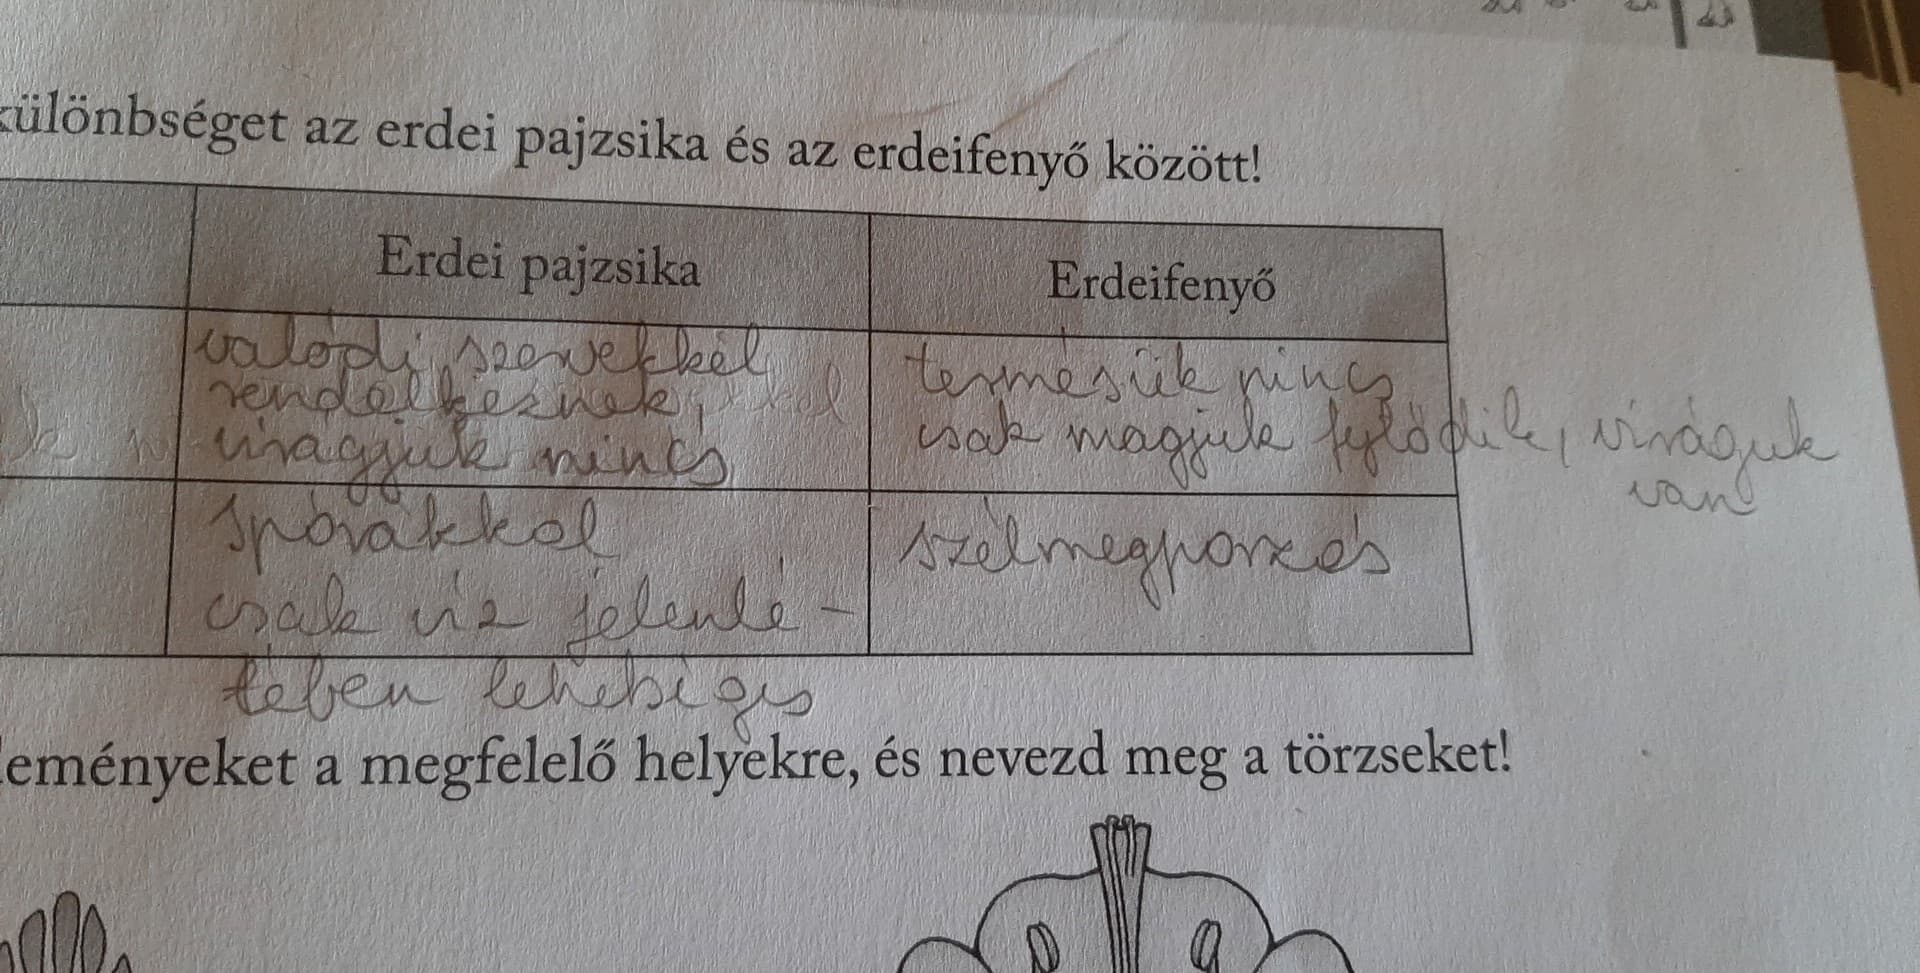 különbséget az erdei pajzsika és az erdeifenyő között!
Erdei pajzsika
Erdeifenyő
valódi szervekkel
rendelkeznek,
virágjuk nincs
termésük nincs
csak magjuk fejlődik, viráguk
van
spórákkal
csak víz jelenlé-
tében lehetséges
szélmegporzás
leményeket a megfelelő helyekre, és nevezd meg a törzseket!